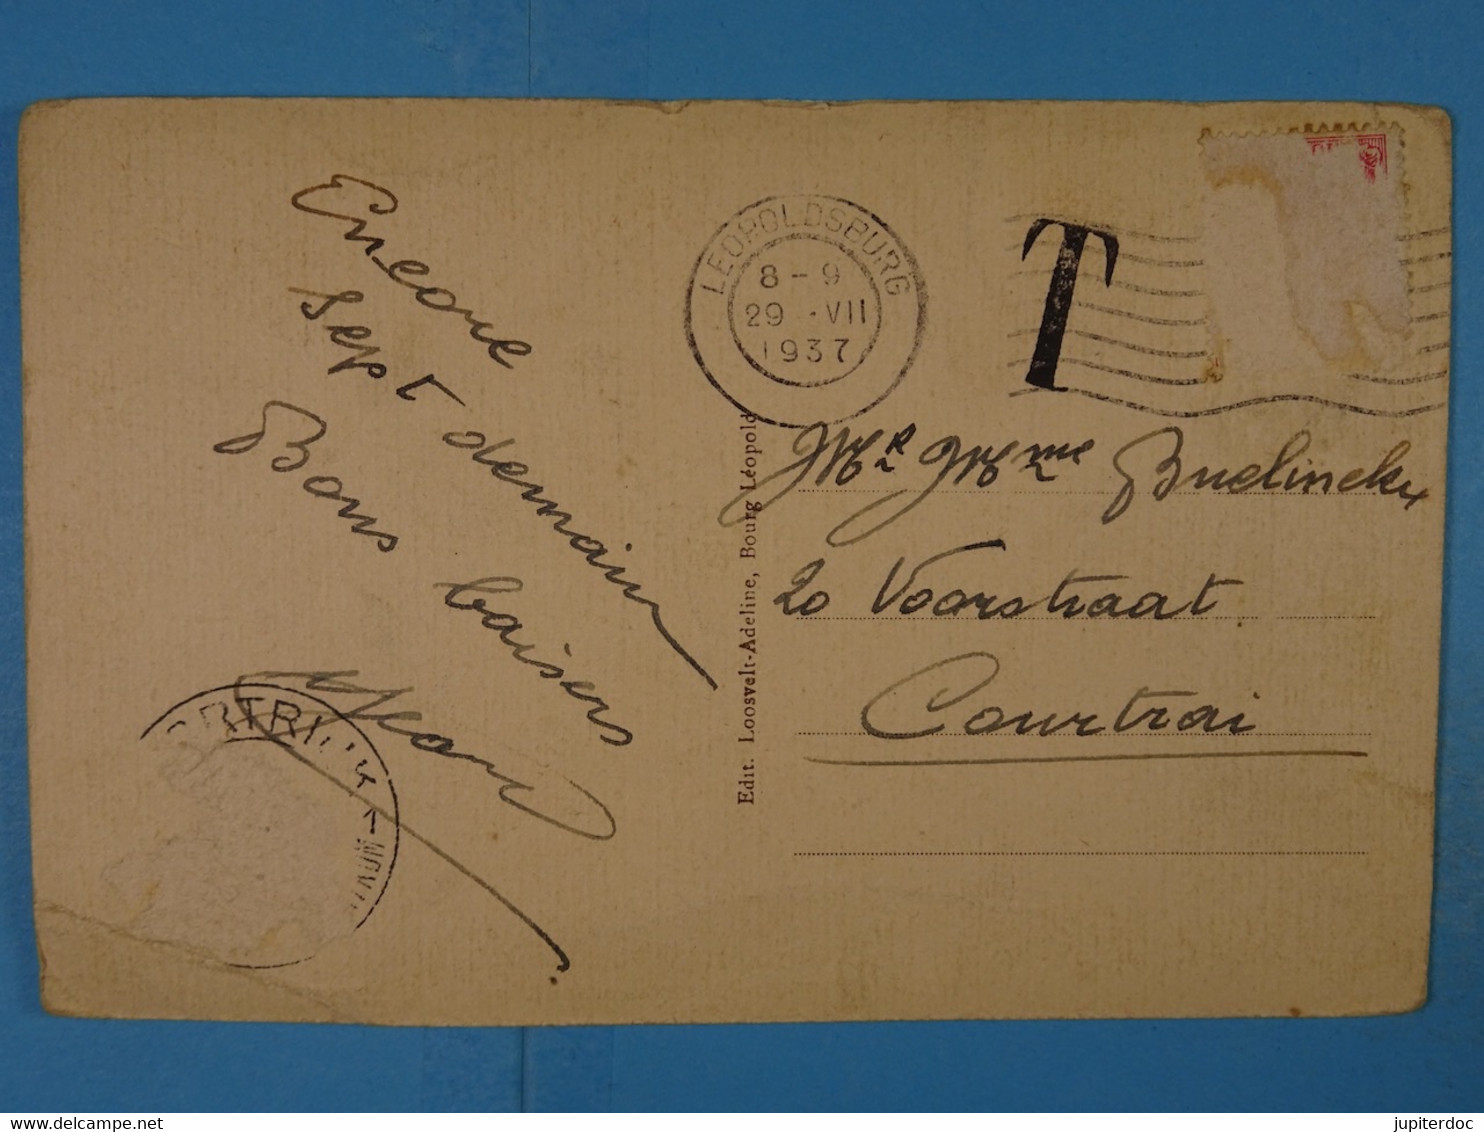 Encore
sept demain
Bons baisers
Jean
LEOPOLDSBURG
8 - 9
29 - VII
1937
T
Edit. Loosvelt-Adeline, Bourg Léopold
Mr Mme Buelinckx
20 Voorstraat
Courtrai
jupiterdoc